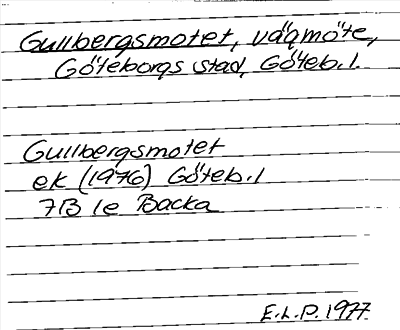 Gullbergsmotet, vägmöte,
Göteborgs stad, Göteb. l.
Gullbergsmotet
ek (1976) Göteb. l
7B 1e Backa
E.L.P. 1977.